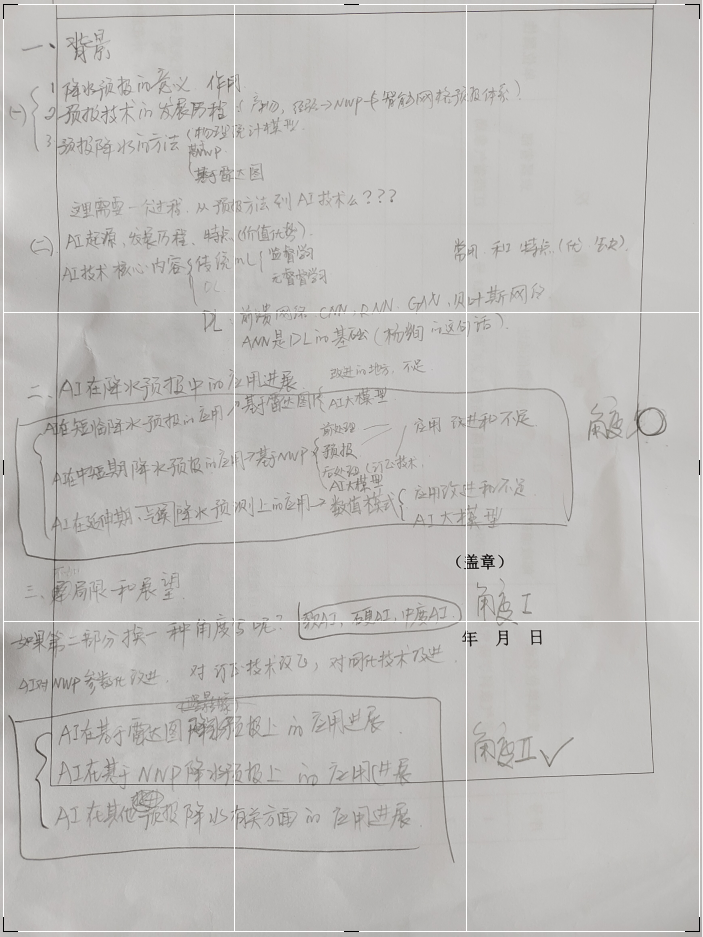 一、背景
(一) 1 降水预报的意义、作用
2 预报技术的发展历程 经验→NWP→智能网格预报体系)
3 预报降水的方法 物理统计模型
NWP
基于雷达图
这里需要一个过程，从预报方法到AI技术么？？？
(二) AI起源、发展历程、特点(价值优势).
AI技术核心内容 传统ML 监督学习 常用 和 特点(优
无监督学习
DL
DL: 前馈网络 CNN、RNN、GAN、贝叶斯网络
ANN是DL的基础(杨绚 的这句话).
二、AI在降水预报中的应用进展 改进的地方、不足
AI在短临降水预报的应用→基于雷达图 AI大模型 角度
AI在中短期降水预报的应用→基于NWP 前处理 应用 改进和不足
预报
后处理(订正技术
AI大模型
AI在延伸期、气候降水预测上的应用→数值模式 应用改进和不足
AI大模型
（盖章）
三、局限和展望
如果第二部分换一种角度写呢? 软AI、硬AI、中度AI. 角度I
年 月 日
AI对NWP参数化改进. 对订正技术改进, 对同化技术改进.
AI在基于雷达图降水预报上的应用进展.
AI在基于NNP降水预报上的应用进展 角度II ✓
AI在其他预报降水有关方面的应用进展.